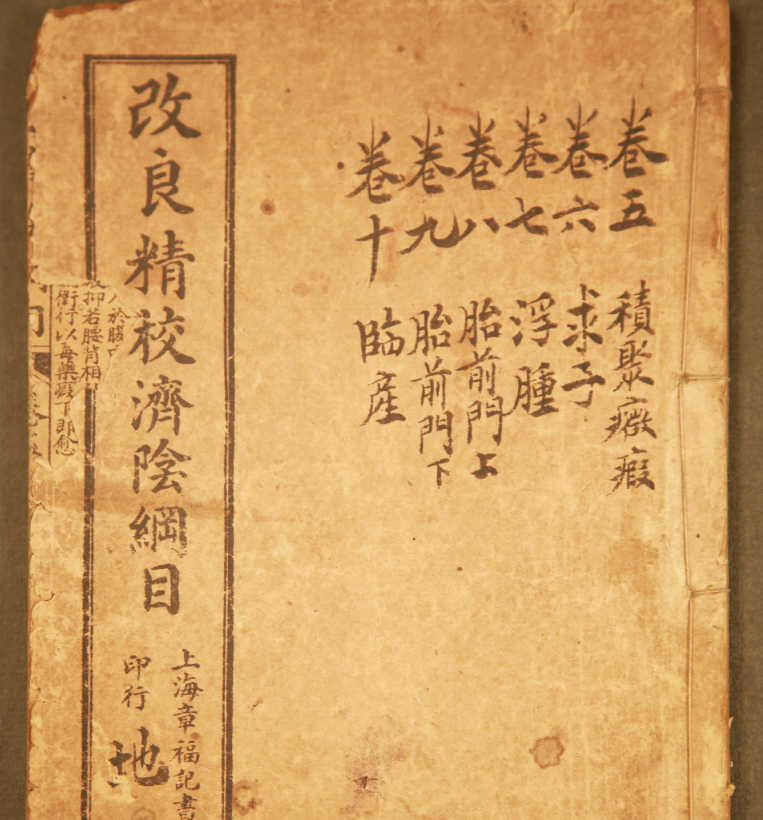 卷五 積聚癥瘕
卷六 求子
卷七 浮腫
卷八 胎前門上
卷九 胎前門下
卷十 臨產
改良精校濟陰綱目
上海章福記書
印行
地
於腹
抑若腰背相
衝行以每藥瘕下即愈